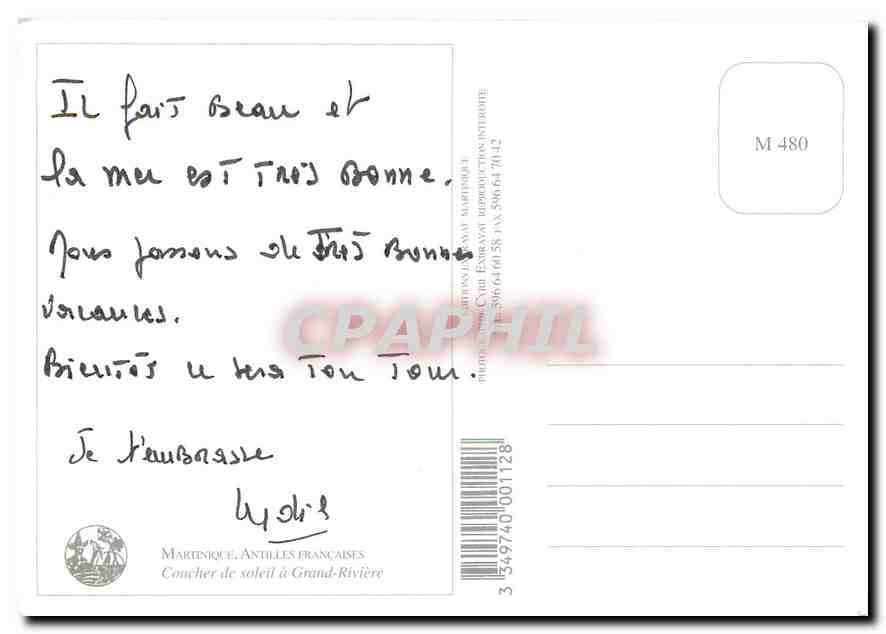 Il fait Beau et
la mer est Très Bonne.
Nous passons de Très Bonnes
vacances.
Bientôt ce sera Ton Tour.
Je t'emBrasse
Lydie
MARTINIQUE, ANTILLES FRANÇAISES
Coucher de soleil à Grand-Rivière
3 349740 001128
EDITIONS EXBRAYAT MARTINIQUE
PHOTOGRAPHIE CYRIL EXBRAYAT REPRODUCTION INTERDITE
TEL. 596 64 60 58 FAX 596 64 70 42
CPAPHIL
M 480